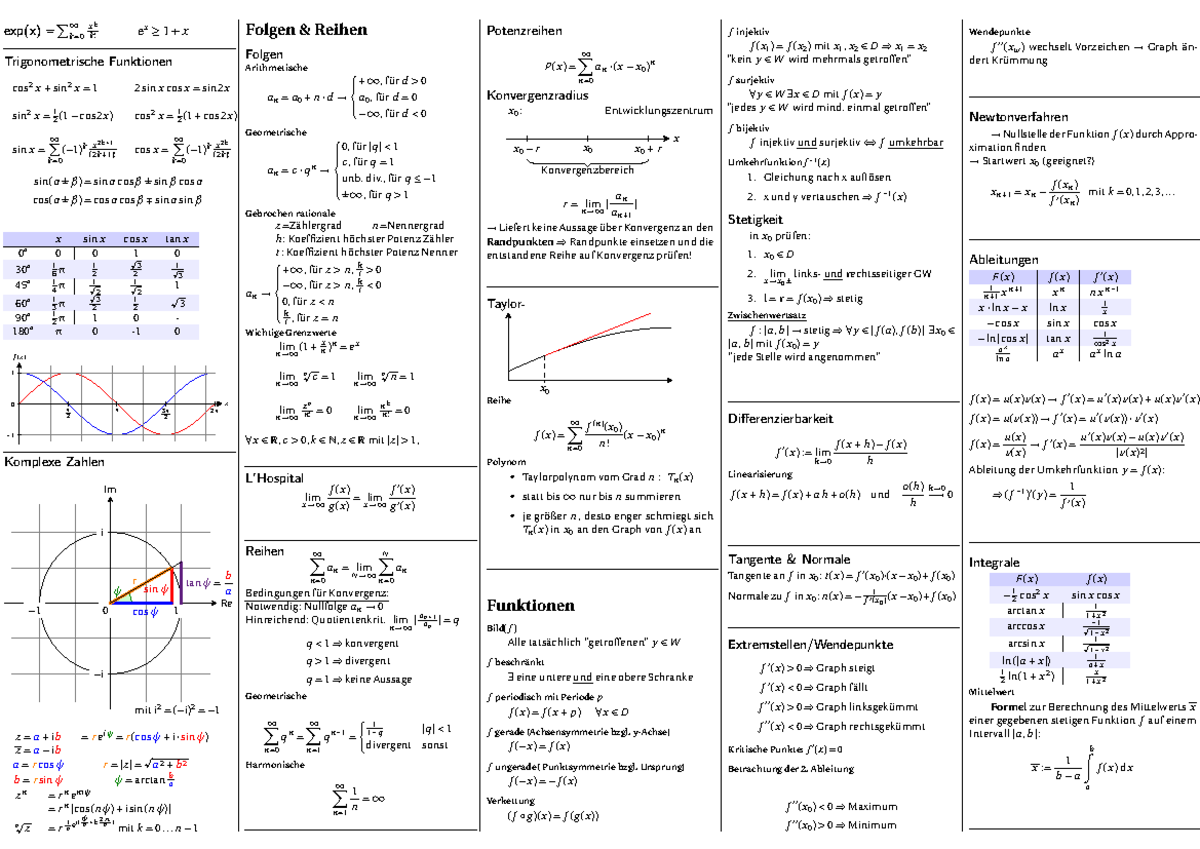 exp(x) = ∑_{k=0}^{∞} x^k/k!    e^x ≥ 1 + x
Trigonometrische Funktionen
cos² x + sin² x = 1    2 sin x cos x = sin 2x
sin² x = ½(1 − cos 2x)    cos² x = ½(1 + cos 2x)
sin x = ∑_{k=0}^{∞} (−1)^k x^{2k+1}/(2k+1)!    cos x = ∑_{k=0}^{∞} (−1)^k x^{2k}/(2k)!
sin(α ± β) = sin α cos β ± sin β cos α
cos(α ± β) = cos α cos β ∓ sin α sin β
x    sin x    cos x    tan x
0°    0    0    1    0
30°    1/6 π    1/2    √3/2    1/√3
45°    1/4 π    1/√2    1/√2    1
60°    1/3 π    √3/2    1/2    √3
90°    1/2 π    1    0    -
180°    π    0    -1    0
f(x)
1
0    π/2    π    3π/2    2π    x
−1
Komplexe Zahlen
Im
i
r    sin ψ    tan ψ = b/a
ψ
−1    0    cos ψ    1    Re
−i
mit i² = (−i)² = −1
z = a + ib    = re^{iψ} = r(cos ψ + i · sin ψ)
z̅ = a − ib
a = r cos ψ    r = |z| = √(a² + b²)
b = r sin ψ    ψ = arctan b/a
z^n    = r^n e^{niψ}
= r^n [cos(nψ) + i sin(nψ)]
mit k = 0 … n − 1
Folgen & Reihen
Folgen
Arithmetische
a_n = a_0 + n · d → { +∞, für d > 0
a_0, für d = 0
−∞, für d < 0
Geometrische
a_n = c · q^n → { 0, für |q| < 1
c, für q = 1
unb. div., für q ≤ −1
±∞, für q > 1
Gebrochen rationale
z = Zählergrad    n = Nennergrad
k: Koeffizient höchster Potenz Zähler
t: Koeffizient höchster Potenz Nenner
a_n → { +∞, für z > n, k/t > 0
−∞, für z > n, k/t < 0
0, für z < n
k/t, für z = n
Wichtige Grenzwerte
lim_{n→∞} (1 + x/n)^n = e^x
lim_{n→∞} ⁿ√c = 1    lim_{n→∞} ⁿ√n = 1
lim_{n→∞} z^n/n! = 0    lim_{n→∞} z^k/n! = 0
∀x ∈ ℝ, c > 0, k ∈ ℕ, z ∈ ℝ mit |z| > 1,
L'Hospital
lim_{x→∞} f(x)/g(x) = lim_{x→∞} f′(x)/g′(x)
Reihen
∑_{n=0}^{∞} a_n = lim_{N→∞} ∑_{n=0}^{N} a_n
Bedingungen für Konvergenz:
Notwendig: Nullfolge a_n → 0
Hinreichend: Quotientenkrit. lim_{n→∞} |a_{n+1}/a_n| = q
q < 1 ⇒ konvergent
q > 1 ⇒ divergent
q = 1 ⇒ keine Aussage
Geometrische
∑_{n=0}^{∞} q^n = ∑_{n=1}^{∞} q^{n−1} = { 1/(1−q)    |q| < 1
divergent    sonst
Harmonische
∑_{n=1}^{∞} 1/n = ∞
Potenzreihen
P(x) = ∑_{n=0}^{∞} a_n · (x − x_0)^n
Konvergenzradius
x_0:    Entwicklungszentrum
x
x_0 − r    x_0    x_0 + r
Konvergenzbereich
r = lim_{n→∞} |a_n/a_{n+1}|
→ Liefert keine Aussage über Konvergenz an den
Randpunkten ⇒ Randpunkte einsetzen und die
entstandene Reihe auf Konvergenz prüfen!
Taylor-
x_0
Reihe
f(x) = ∑_{n=0}^{∞} f^{(n)}(x_0)/n! (x − x_0)^n
Polynom
• Taylorpolynom vom Grad n : T_n(x)
• statt bis ∞ nur bis n summieren
• je größer n, desto enger schmiegt sich
T_n(x) in x_0 an den Graph von f(x) an
Funktionen
Bild(f)
Alle tatsächlich "getroffenen" y ∈ W
f beschränkt
∃ eine untere und eine obere Schranke
f periodisch mit Periode p
f(x) = f(x + p)    ∀x ∈ D
f gerade (Achsensymmetrie bzgl. y-Achse)
f(−x) = f(x)
f ungerade( Punktsymmetrie bzgl. Ursprung)
f(−x) = −f(x)
Verkettung
(f ∘ g)(x) = f(g(x))
f injektiv
f(x_1) = f(x_2) mit x_1, x_2 ∈ D ⇒ x_1 = x_2
"kein y ∈ W wird mehrmals getroffen"
f surjektiv
∀y ∈ W ∃x ∈ D mit f(x) = y
"jedes y ∈ W wird mind. einmal getroffen"
f bijektiv
f injektiv und surjektiv ⇔ f umkehrbar
Umkehrfunktion f⁻¹(x)
1. Gleichung nach x auflösen
2. x und y vertauschen ⇒ f⁻¹(x)
Stetigkeit
in x_0 prüfen:
1. x_0 ∈ D
2. lim_{x→x_0±} links- und rechtsseitiger GW
3. l = r = f(x_0) ⇒ stetig
Zwischenwertsatz
f : [a, b] → stetig ⇒ ∀y ∈ [f(a), f(b)] ∃x_0 ∈
[a, b] mit f(x_0) = y
"jede Stelle wird angenommen"
Differenzierbarkeit
f′(x) := lim_{h→0} (f(x + h) − f(x))/h
Linearisierung
f(x + h) = f(x) + ah + o(h)    und    o(h)/h →^{h→0} 0
Tangente & Normale
Tangente an f in x_0: t(x) = f′(x_0)·(x − x_0) + f(x_0)
Normale zu f in x_0: n(x) = −1/f′(x_0) (x − x_0) + f(x_0)
Extremstellen/Wendepunkte
f′(x) > 0 ⇒ Graph steigt
f′(x) < 0 ⇒ Graph fällt
f″(x) > 0 ⇒ Graph linksgekümmt
f″(x) < 0 ⇒ Graph rechtsgekümmt
Kritische Punkte f′(x) = 0
Betrachtung der 2. Ableitung
f″(x_0) < 0 ⇒ Maximum
f″(x_0) > 0 ⇒ Minimum
Wendepunkte
f″(x_w) wechselt Vorzeichen → Graph än-
dert Krümmung
Newtonverfahren
→ Nullstelle der Funktion f(x) durch Appro-
ximation finden
→ Startwert x_0 (geeignet?)
x_{n+1} = x_n − f(x_n)/f′(x_n)    mit k = 0, 1, 2, 3, …
Ableitungen
F(x)    f(x)    f′(x)
1/(n+1) x^{n+1}    x^n    nx^{n−1}
x · ln x − x    ln x    1/x
− cos x    sin x    cos x
− ln |cos x|    tan x    1/cos² x
a^x/ln a    a^x    a^x ln a
f(x) = u(x)v(x) → f′(x) = u′(x)v(x) + u(x)v′(x)
f(x) = u(v(x)) → f′(x) = u′(v(x)) · v′(x)
f(x) = u(x)/v(x) → f′(x) = (u′(x)v(x) − u(x)v′(x))/[v(x)²]
Ableitung der Umkehrfunktion y = f(x):
⇒ (f⁻¹)′(y) = 1/f′(x)
Integrale
F(x)    f(x)
−½ cos² x    sin x cos x
arctan x    1/(1+x²)
arccos x    −1/√(1−x²)
arcsin x    1/√(1−x²)
ln(|a + x|)    1/(a+x)
½ ln(1 + x²)    x/(1+x²)
Mittelwert
Formel zur Berechnung des Mittelwerts x̅
einer gegebenen stetigen Funktion f auf einem
Intervall [a, b]:
x̅ := 1/(b − a) ∫_a^b f(x) dx